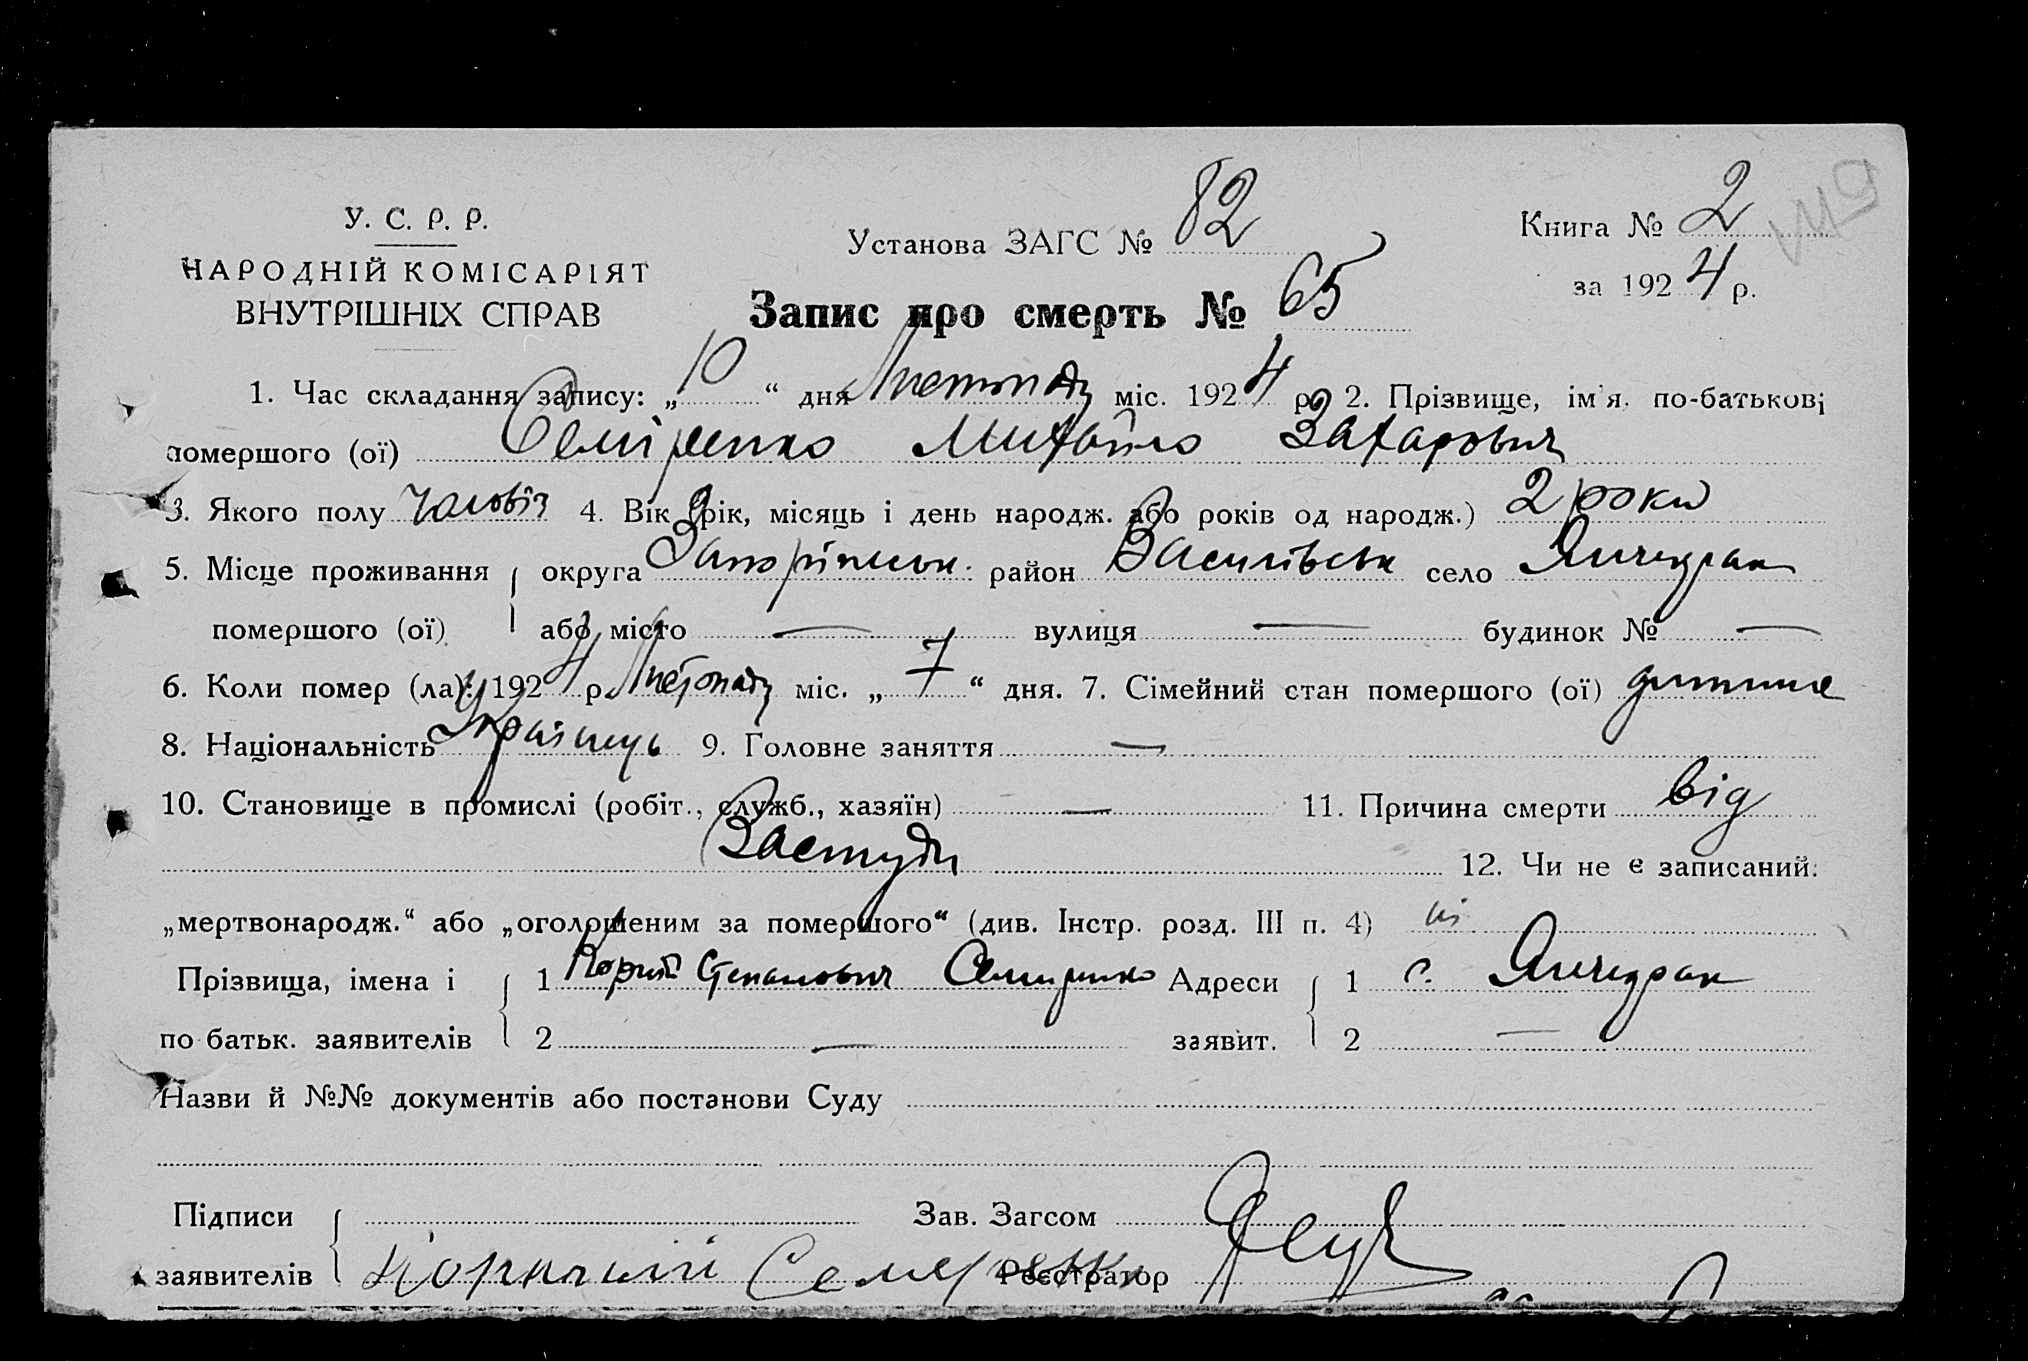 У. С. Р. Р.
НАРОДНІЙ КОМІСАРІЯТ
ВНУТРІШНІХ СПРАВ
Установа ЗАГС № 82
Книга № 2
за 1924 р.
Запис про смерть № 65
1. Час складання запису: „10“ дня Листопаду міс. 1924 р. 2. Прізвище, ім'я, по-батькові
помершого (ої) Семіренко Михайло Захарович
3. Якого полу чоловіч 4. Вік (рік, місяць і день народж. або років од народж.) 2 роки
5. Місце проживання округа Запоріжськ. район Василівськ село Янчекрак
помершого (ої) або місто — вулиця — будинок № —
6. Коли помер (ла): 1924 р. Листопаду міс. „7“ дня. 7. Сімейний стан помершого (ої) дитина
8. Національність Українець 9. Головне заняття —
10. Становище в промислі (робіт., служб., хазяїн) — 11. Причина смерти від
Застуди 12. Чи не є записаний:
„мертвонародж.“ або „оголошеним за помершого“ (див. Інстр. розд. III п. 4) ні
Прізвища, імена і 1 Корній Степанович Семиренко Адреси 1 с. Янчекрак
по батьк. заявителів 2 — заявит. 2 —
Назви й №№ документів або постанови Суду
Підписи Зав. Загсом
заявителів Семеренко Реєстратор